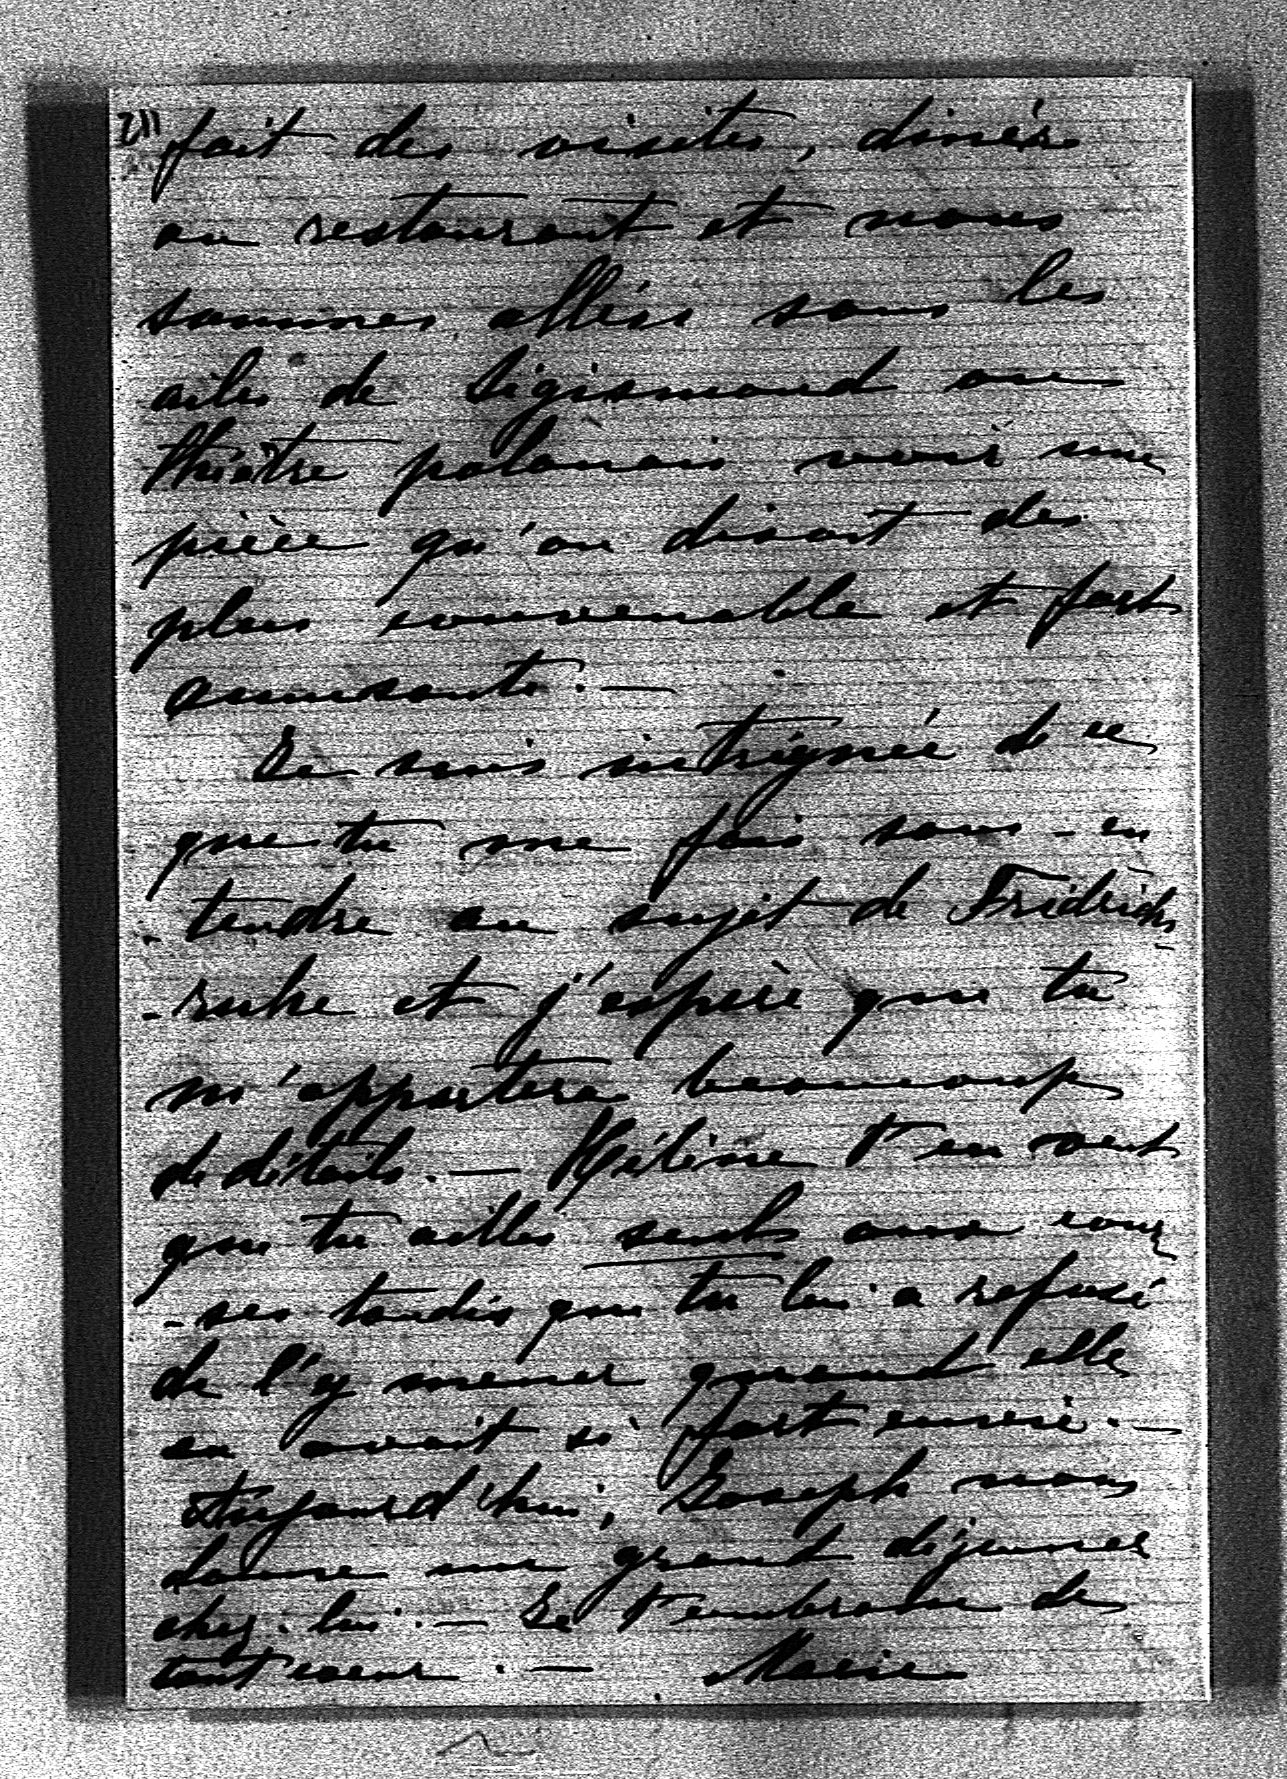 211
fait des visites, dinées
au restaurant et nous
sommes allés sous les
ailes de Sigismond au
théâtre polonais voir une
pièce qu'on disait des
plus convenable et fort
amusante. —
Je suis intriguée de ce
que tu me fais sous-en
-tendre au sujet de Fridrichs
-ruhe et j'espère que tu
m'apportera beaucoup
de détails. — Hélène t'en veut
que tu ailles seuls aux cour
-ses tandis que tu lui a refusé
de l'y mener quand elle
en avait si fort envie. —
Aujourd'hui, Joseph nous
donne un grand déjeuner
chez-lui. — Je t'embrasse de
tout coeur. — Marie